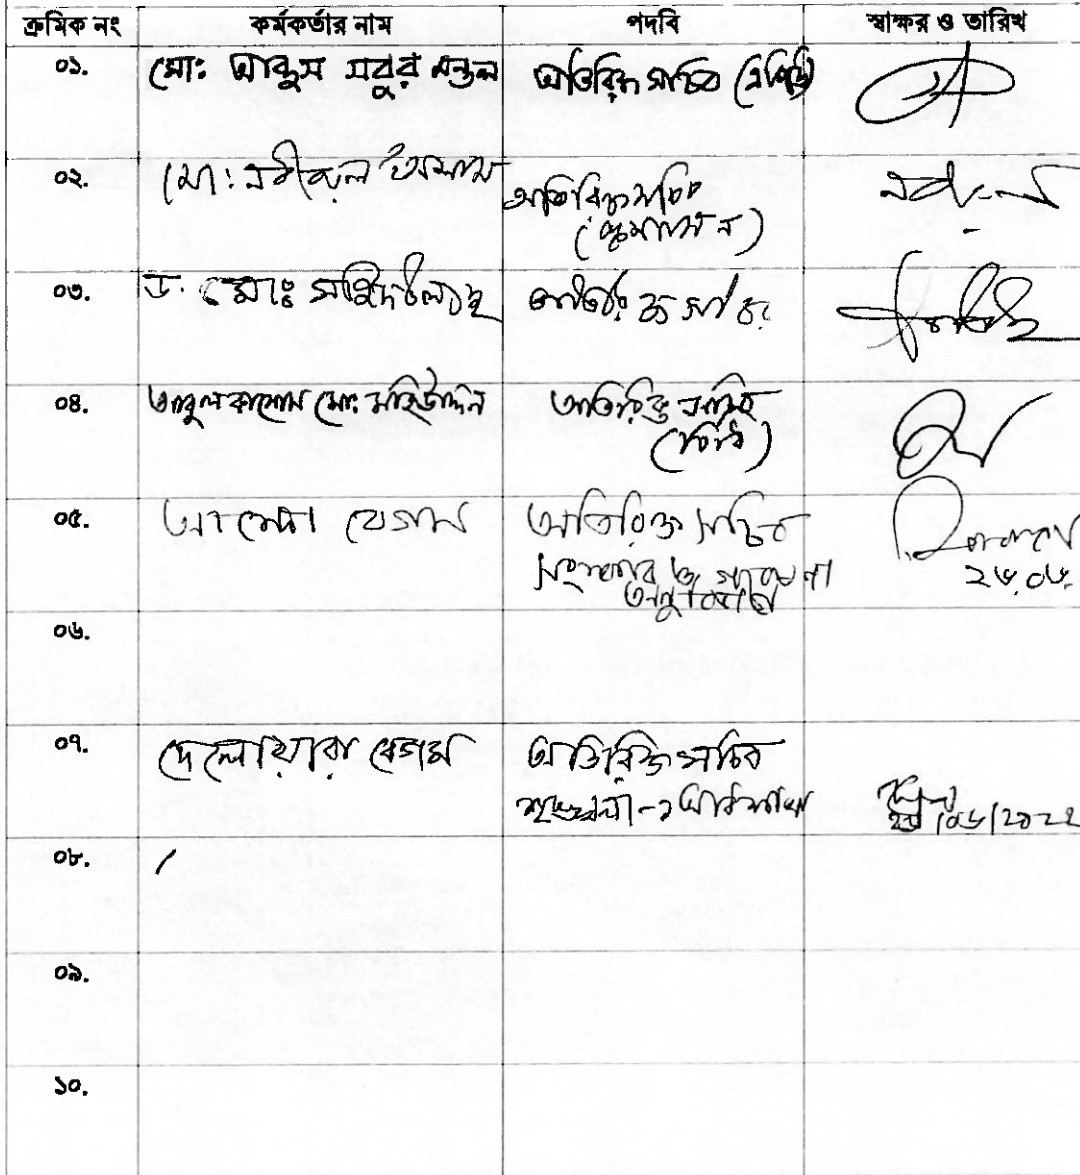 ক্রমিক নং কর্মকর্তার নাম পদবি স্বাক্ষর ও তারিখ
০১. মোঃ আব্দুস সবুর মন্ডল অতিরিক্ত সচিব (এপিডি)
০২. মো: নবীরুল ইসলাম অতিরিক্ত সচিব
(প্রশাসন)
০৩. ড. মোঃ সহিদউল্যাহ অতিরিক্ত সচিব
০৪. আবুল কাসেম মো: মহিউদ্দিন অতিরিক্ত সচিব
(বিধি)
০৫. বেগম অতিরিক্ত সচিব
সংস্কার ও গবেষণা ২৬.০৬.
অনুবিভাগ
০৬.
০৭. দেলোয়ারা বেগম অতিরিক্ত সচিব
শৃঙ্খলা-১ অধিশাখা
০৮.
০৯.
১০.